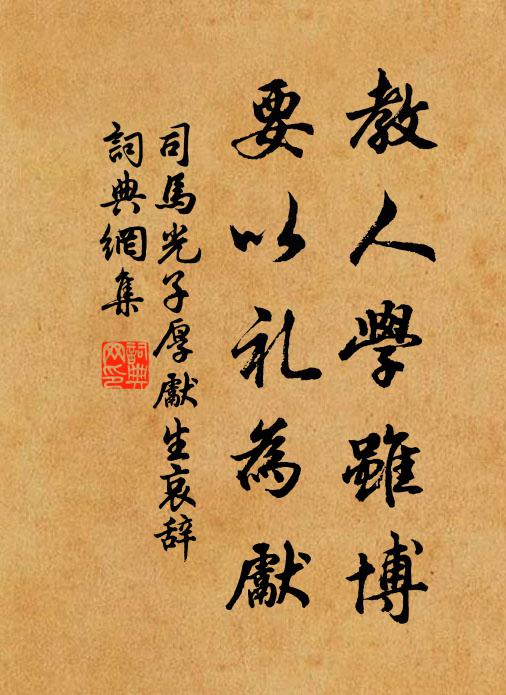 教人學雖博
要以礼為獻
司馬光子厚獻生哀辞
詞典網集
詞典
网印